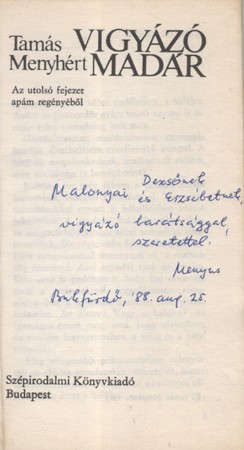 Tamás VIGYÁZÓ
Menyhért MADÁR
Az utolsó fejezet
apám regényéből
Malonyai Dezsőnek
és Erzsébetnek,
vigyázó barátsággal,
szeretettel:
Menyus
Bükfürdő, '88. aug. 25.
Szépirodalmi Könyvkiadó
Budapest